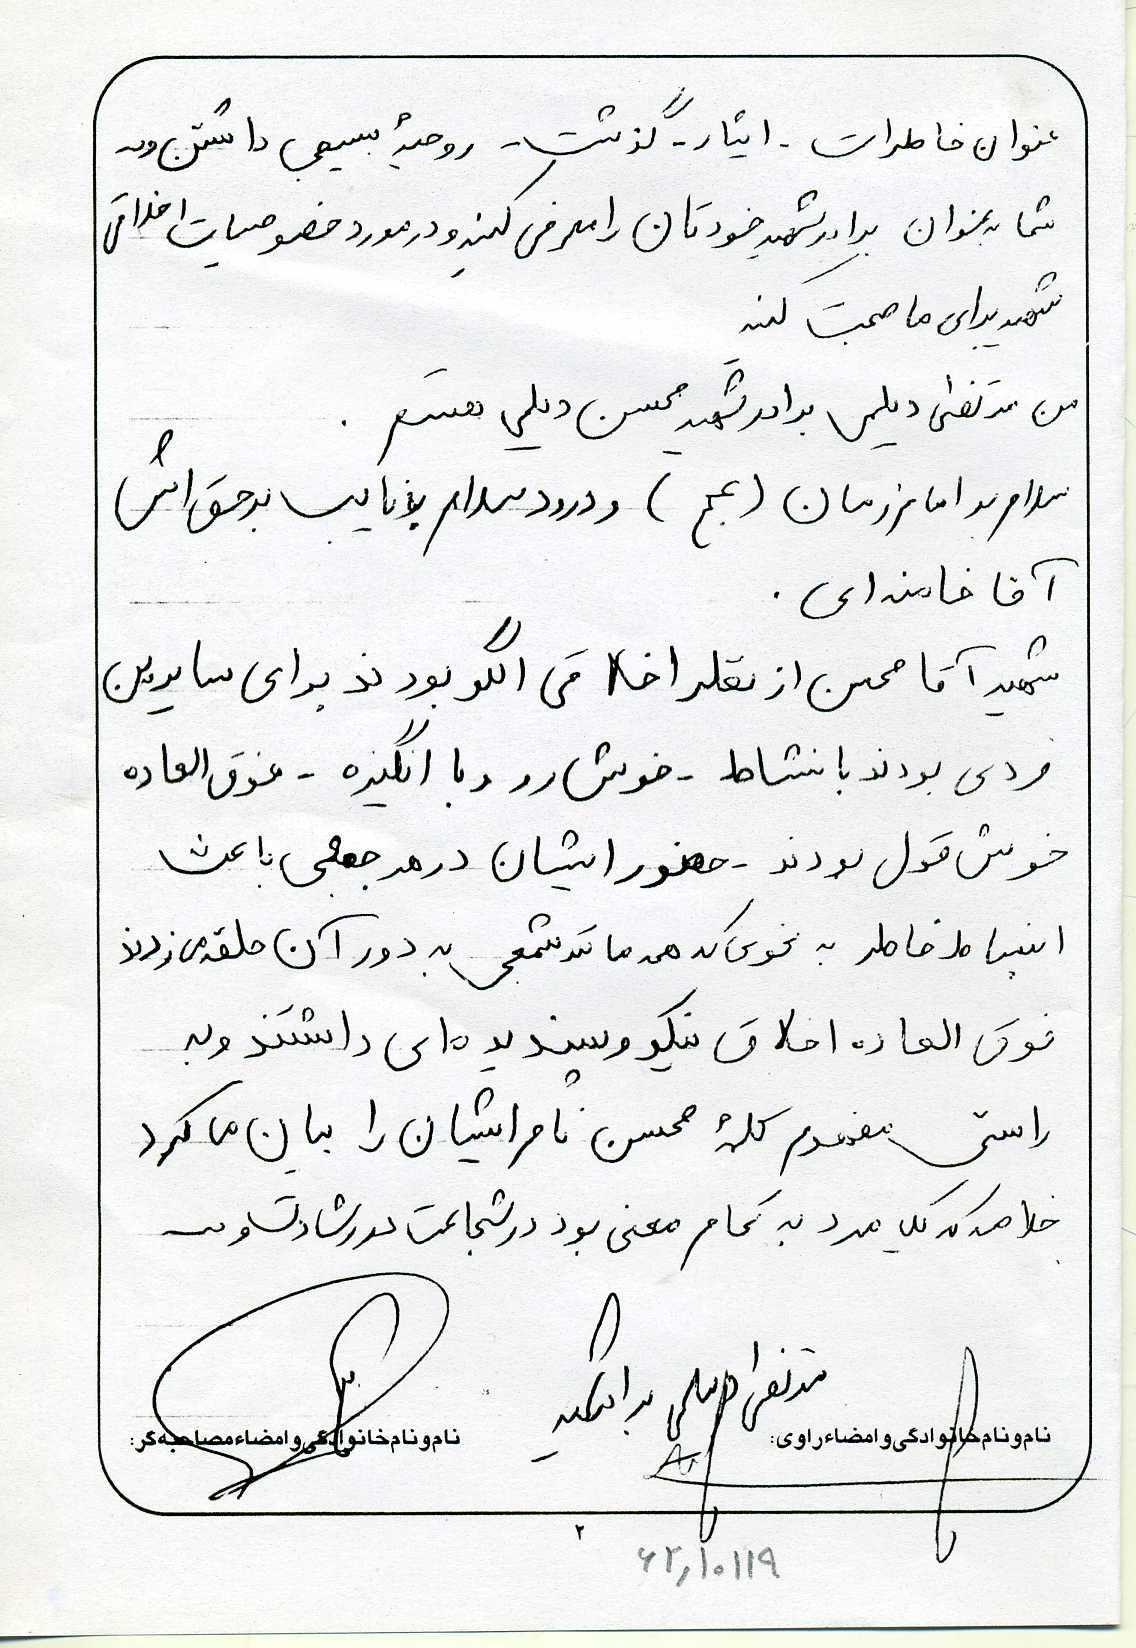 عنوان خاطرات - ایثار - گذشت - روحیهٔ بسیجی داشتن و...
شما به عنوان برادر شهید خودتان را معرفی کنید و در مورد خصوصیات اخلاقی
شهید برای ما صحبت کنید
من مرتضی دیلمی برادر شهید محسن دیلمی هستم .
سلام بر امام زمان (عج) و درود سلام بر نایب برحق اش
آقا خامنه ای .
شهید آقا محسن از نظر اخلاقی الگو بودند برای سایرین
فردی بودند با نشاط - خوش رو و با انگیزه - فوق العاده
خوش قول بودند - حضور ایشان در هر جمعی باعث
انبساط خاطر به نحوی که همه مانند شمعی به دور آن حلقه می زدند
فوق العاده اخلاق نیکو و پسندیده ای داشتند و به
راستی مفهوم کلمهٔ محسن نام ایشان را بیان می کرد
خلاصه که یک مرد به تمام معنی بود در شجاعت در رشادت و
مرتضی دیلمی برادر شهید
نام و نام خانوادگی و امضاء راوی:
نام و نام خانوادگی و امضاء مصاحبه گر:
۲
۶۲٫۱۰۱۱۹